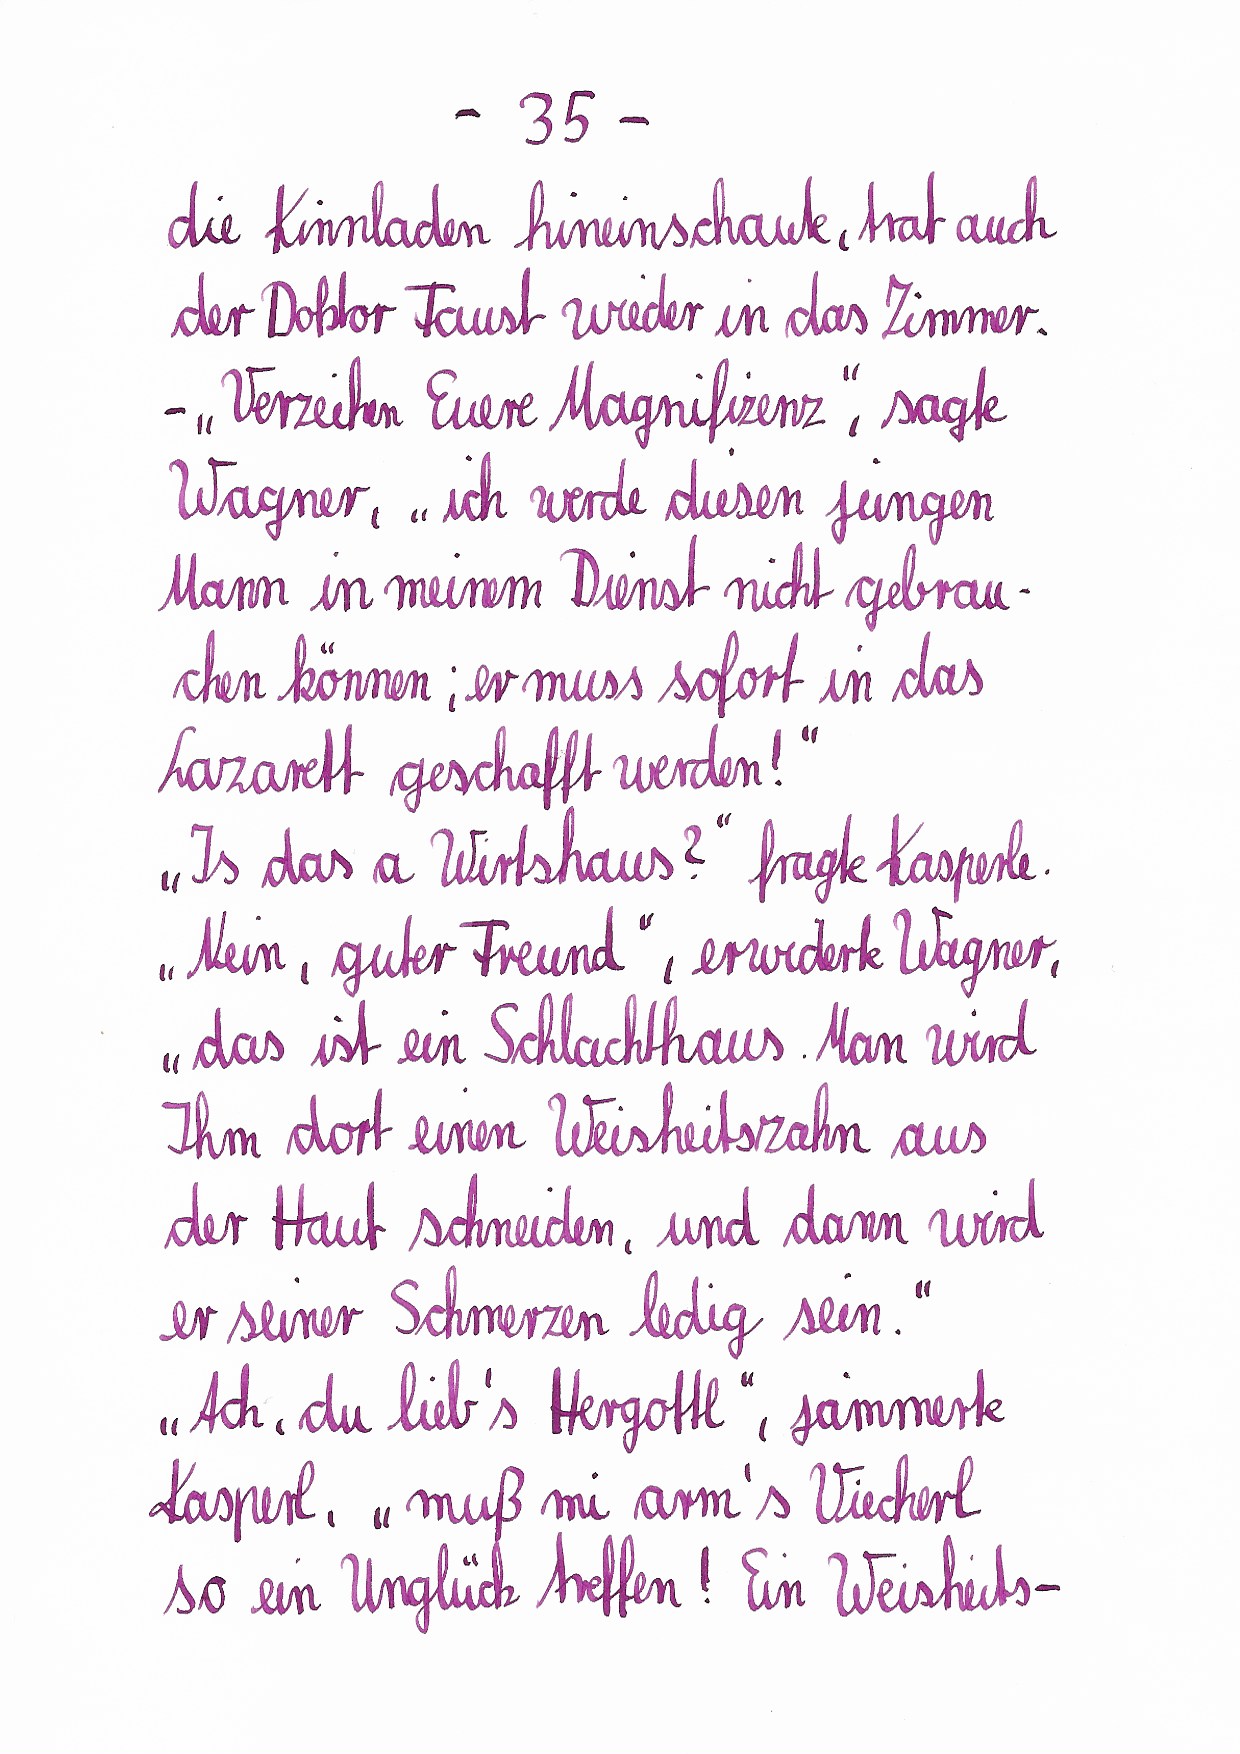 - 35 -
die Kinnladen hineinschaute, trat auch
der Doktor Faust wieder in das Zimmer.
- „Verzeihen Euere Magnifizenz“, sagte
Wagner, „ich werde diesen jungen
Mann in meinem Dienst nicht gebrau-
chen können; er muss sofort in das
Lazarett geschafft werden!“
„Is das a Wirtshaus?“ fragte Kasperle.
„Nein, guter Freund“, erwiderte Wagner,
„das ist ein Schlachthaus. Man wird
Ihm dort einen Weisheitszahn aus
der Haut schneiden, und dann wird
er seiner Schmerzen ledig sein.“
„Ach, du lieb's Hergottl“, jammerte
Kasperl, „muß mi arm's Viecherl
so ein Unglück treffen! Ein Weisheits-